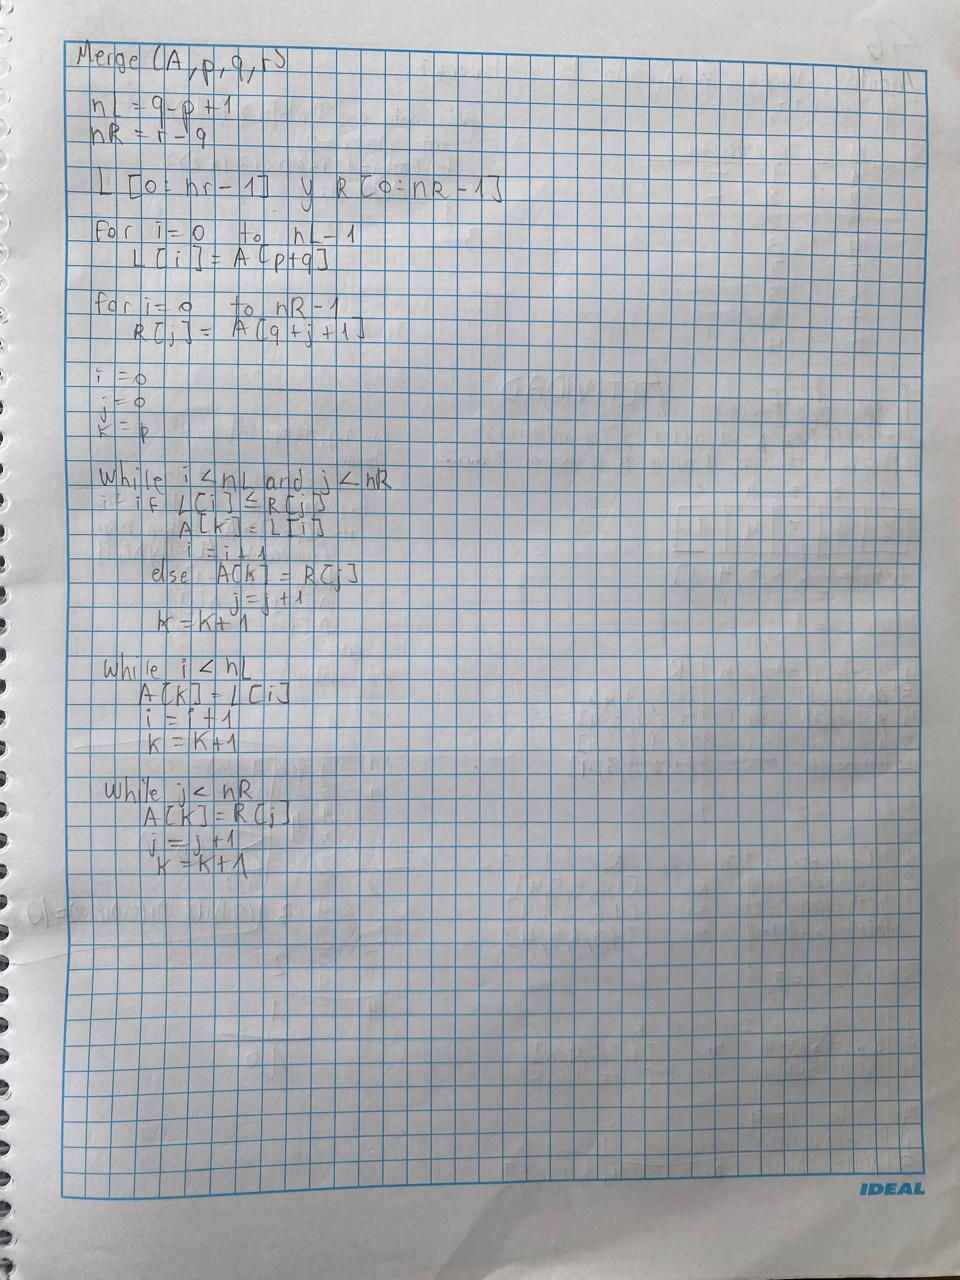 Merge (A, p, q, r)
nL = q-p+1
nR = r-q
L [0: nr-1] y R [0: nR-1]
for i=0 to nL-1
L[i] = A[p+q]
for i=0 to nR-1
R[j] = A[q+j+1]
i = 0
j = 0
k = p
While i < nL and j < nR
if L[i] ≤ R[j]
A[k] = L[i]
i = i+1
else A[k] = R[j]
j = j+1
k = k+1
While i < nL
A[k] = L[i]
i = i+1
k = k+1
While j < nR
A[k] = R[j]
j = j+1
k = k+1
IDEAL